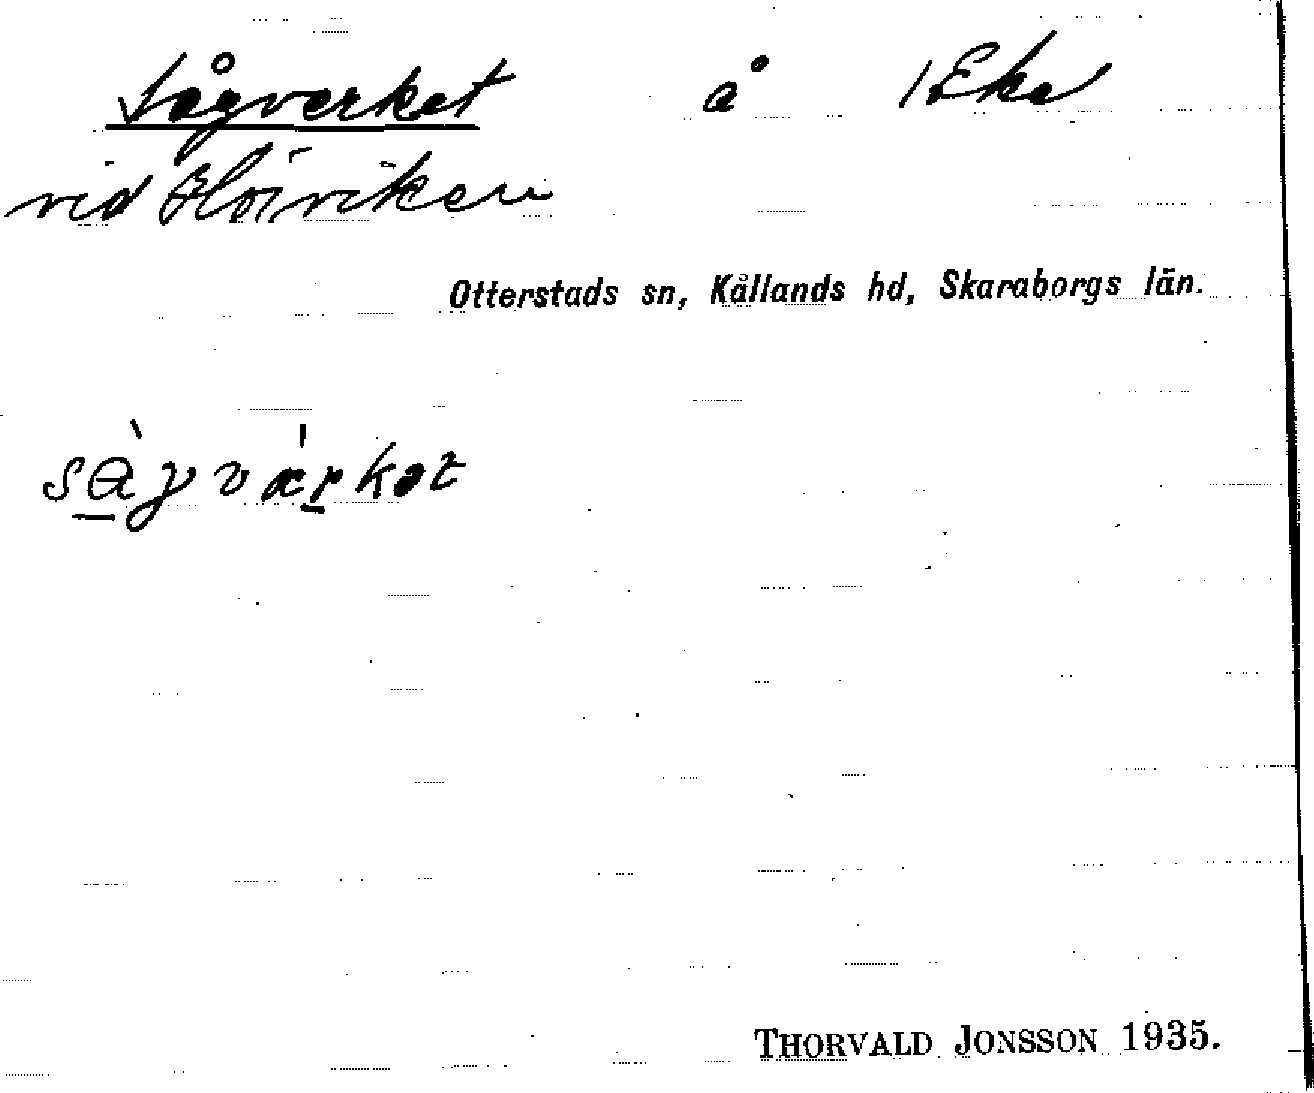 Sågverket å 1 Eka
vid Hörviken
Otterstads sn, Kållands hd, Skaraborgs län.
THORVALD JONSSON 1935.